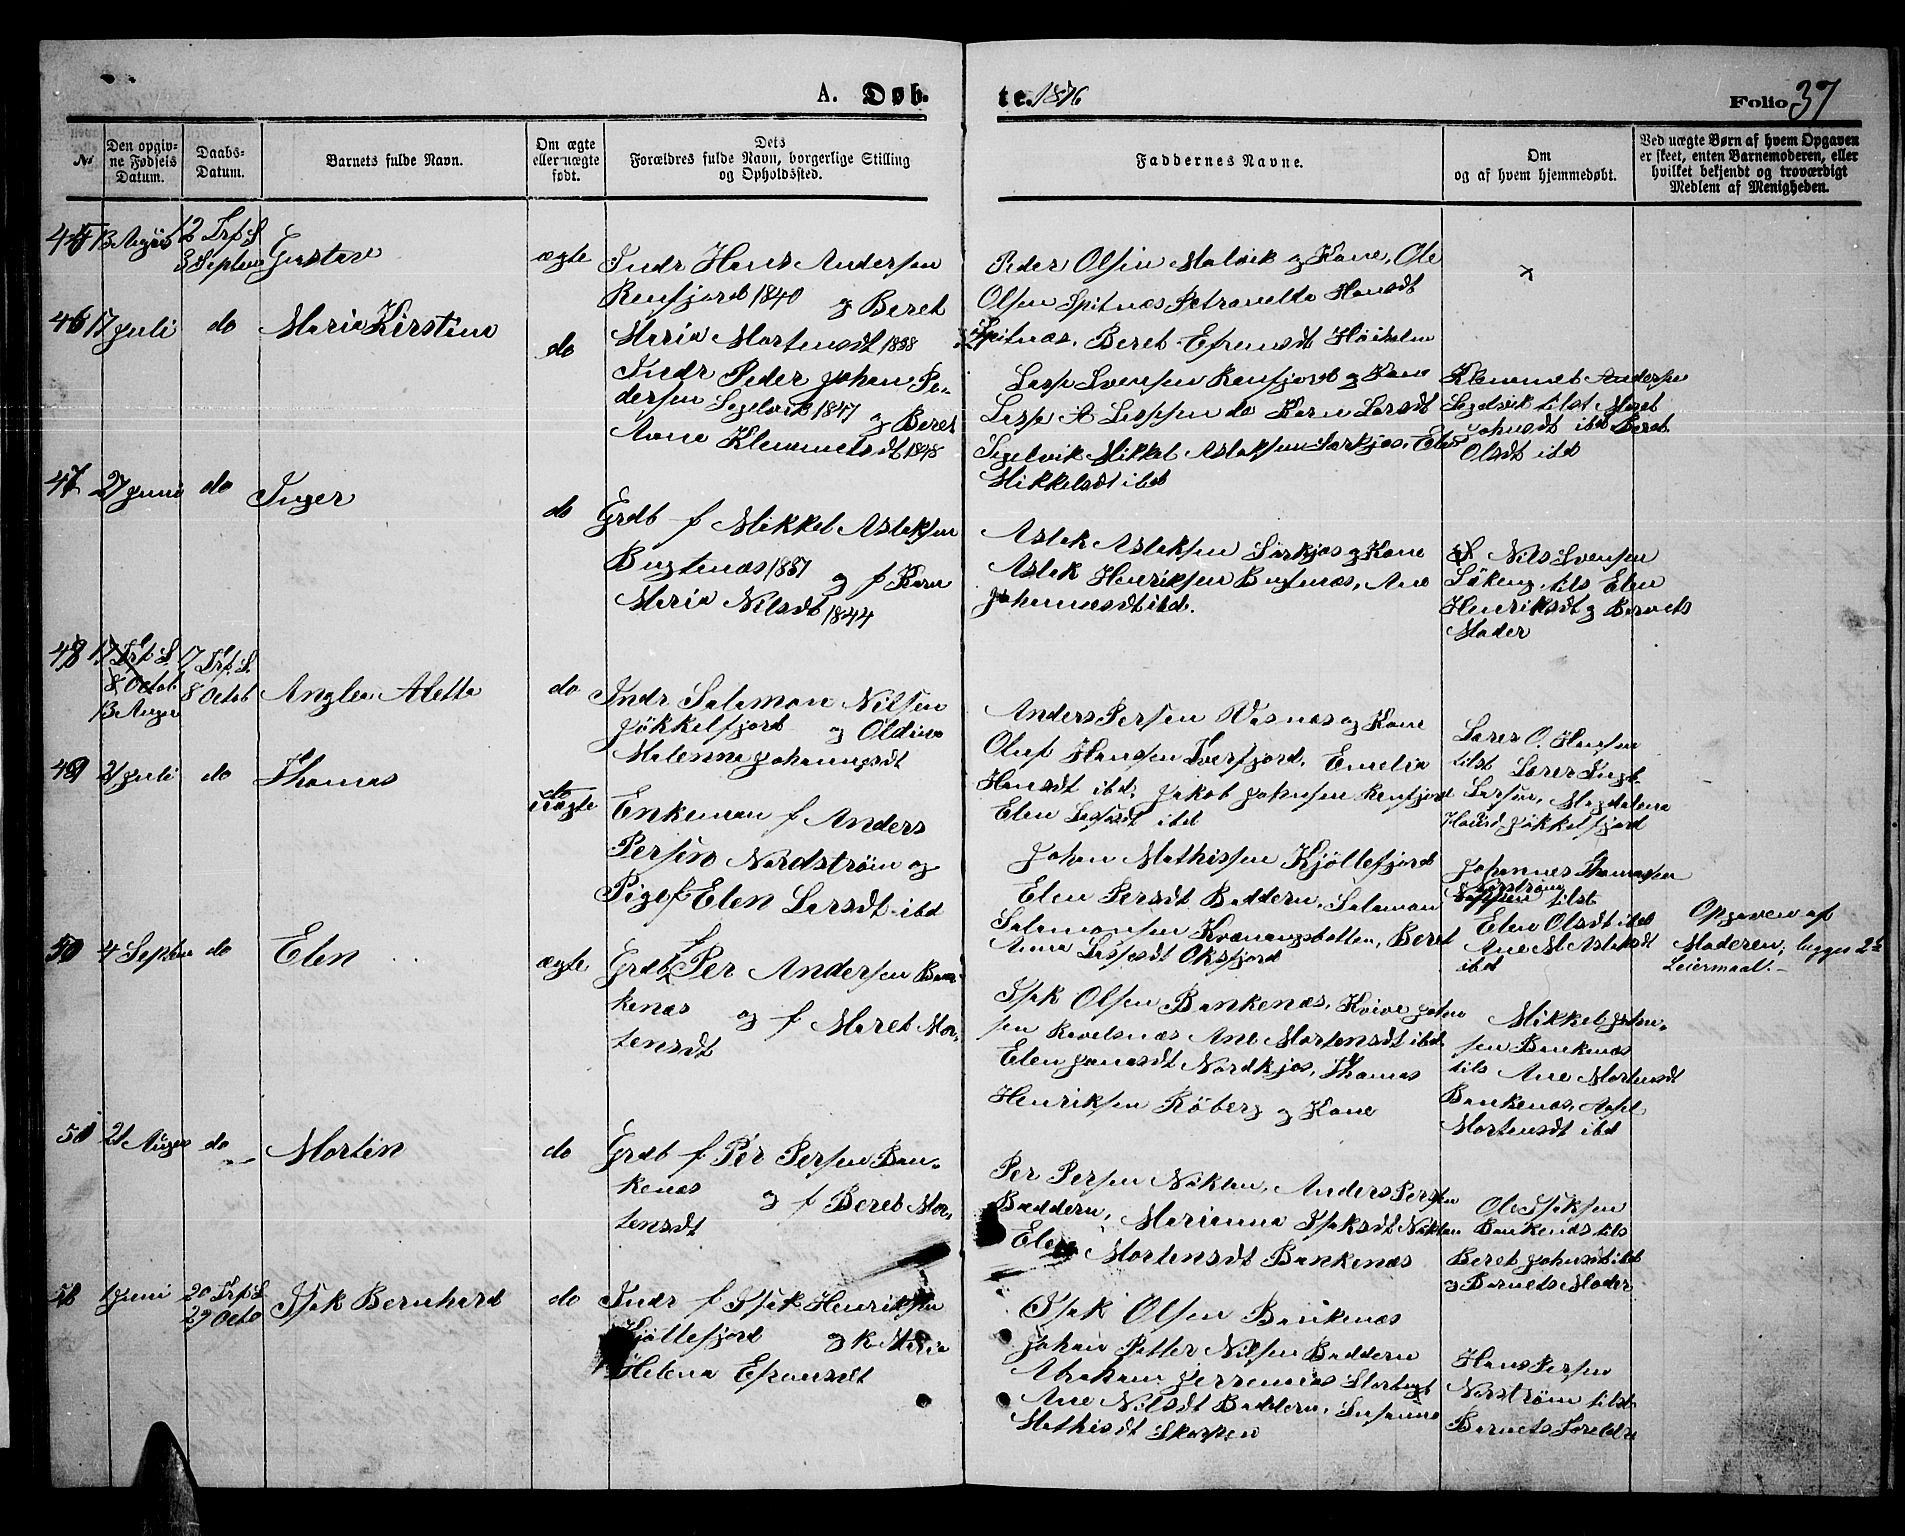 A. Døb. te. 1876 Folio 37
No
Den opgiv-
ne Fødsels
Datum.
Daabs-
Datum.
Barnets fulde Navn.
Om ægte
eller uægte
født.
Dets
Forældres fulde Navn, borgerlige Stilling
og Opholdssted.
Faddernes Navne.
Om
og af hvem hjemmedøbt.
Ved uægte Børn af hvem Opgaven
er skeet, enten Barnemoderen, eller
hvilket bekjendt og troværdigt
Medlem af Menigheden.
45 13 August 12 Trf S
3 Septem Gustav
ægte
Indr Hans Andersen
Renfjord 1840 og Beret
Maria Mortensdt 1838
Peder Olsen Malvik og Kone, Ole
Olsen Spitnæs Petranella Hansdt
Spitnæs, Beret Efremsdt Høiholm
x
46 17 Juli do Maria Kirstine
do
Indr Peder Johan Pe-
dersen Segelvik 1847 og Beret
Anna Klemmetsdt 1848
Lasse Svensen Renfjord og Kone
Lasse A Lassen do Karn Larsdt
Segelvik Mikkel Aslaksen Sørkjos, Elen
Mikkelsdt ibd
Klemmet Andersen
Segelvik tilst Maret
Johnsdt ibd Beret
Olsdt ibd
47 27 Juni do Inger
do
Grdb f Mikkel Aslaksen
Bugtenæs 1837 og f Karn
Maria Nilsdt 1844
Aslak Aslaksen Sørkjos og Kone
Aslak Henriksen Bugtnæs, Ane
Johannesdt ibd.
Nils Svensen
Løkeng, tils Elen
Henriksdt og Barnets
Moder
48 17 Trf S. 17 Trf. S.
8 Octob 8 Octob
13 Augu
Anglea Aletta
do
Indr Salamon Nilsen
Jøkkelfjord og Oldine
Malenna Johannsdt
Anders Persen Vasnæs og Kone
Oluf Hansen Tverfjord, Emelia
Hansdt ibd, Jakob Johnsen Renfjord
Elen Lassesdt ibd
Lærer O. Hansen
tilst Lærer Ingb.
Larsen, Magdalena
Hansd Jøkkelfjord
49 21 Juli do Thomas
do
uægte
Enkeman f Anders
Persen Nordstrøm og
Pige f Elen Larsdt ibd
Johan Mathissen Kjøllefjord
Elen Persdt Baddern, Salamon
Salamonsen Kvænangsbotten, Beret
Anna Lassesdt Oksfjord
Johannes Thomassen
Norstrøm
tilst
Elen Olsdt ibd
Ane M Aslaksdt
ibd
Opgaven af
Moderen; begges 2det
Leiermaal.
50 4 Septem do Elen
ægte
Grdb f Per Andersen Ban-
kenæs og f Maret Mor-
tensdt
Isak Olsen Bankenæs, Kvive John
sen Ravelsnæs Ane Mortensdt ibd
Elen Jonasdt Nordkjos, Thomas
Henriksen Røberg og Kone
Mikkel John-
sen Bankenæs
tils Ane Mortensdt
Bankenæs,
Mortensdt ibd
51 21 Augus do Morten
do
Grdb f Per Persen Ban-
kenæs og f Beret Mor-
tensdt
Per Persen Nøklan, Anders Persen
Baddern, Marianna Isaksdt Nøklan
Elen Mortensdt Bankenæs
Ole Isaksen
Bankenæs tils
Beret Johnsdt ibd
og Barnets Moder
52 1 Juni 20 Trf S
29 Octo Isak Bernhard
do
Indr f Isak Henriksen
Kjøllefjord og k Maria
Helena Eframsdt
Isak Olsen Bankenæs
Johan Petter Nilsen Baddern
Abraham Jerremias Storbugt
Ane Nilsdt Baddern, Susanna
Mathisdt Skorpen
Hans Persen
Norstrøm tilst
Barnets Foreldre